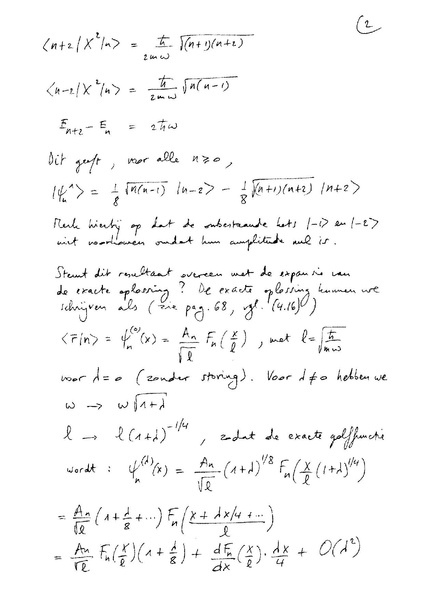 (2
⟨n+2|X²|n⟩ = ħ/2mω √(n+1)(n+2)
⟨n-2|X²|n⟩ = ħ/2mω √n(n-1)
E_{n+2} - E_n = 2ħω
Dit geeft, voor alle n ≥ 0,
|ψ_n^1⟩ = 1/8 √n(n-1) |n-2⟩ - 1/8 √(n+1)(n+2) |n+2⟩
Merk hierbij op dat de onbestaande kets |-1⟩ en |-2⟩
niet voorkomen omdat hun amplitude nul is.
Stemt dit resultaat overeen met de expansie van
de exacte oplossing? De exacte oplossing kunnen we
schrijven als (zie pag. 68, vgl. (4.16))
⟨r̄|n⟩ = ψ_n^{(0)}(x) = A_n/√l F_n(x/l), met l = √ħ/mω
voor λ = 0 (zonder storing). Voor λ ≠ 0 hebben we
ω → ω√1+λ
l → l(1+λ)^{-1/4}, zodat de exacte golffunctie
wordt: ψ_n^{(λ)}(x) = A_n/√l (1+λ)^{1/8} F_n(x/l (1+λ)^{1/4})
= A_n/√l (1 + λ/8 + ...) F_n(x + λx/4 + ... / l)
= A_n/√l F_n(x/l)(1 + λ/8) + dF_n/dx (x/l) · λx/4 + O(λ²)